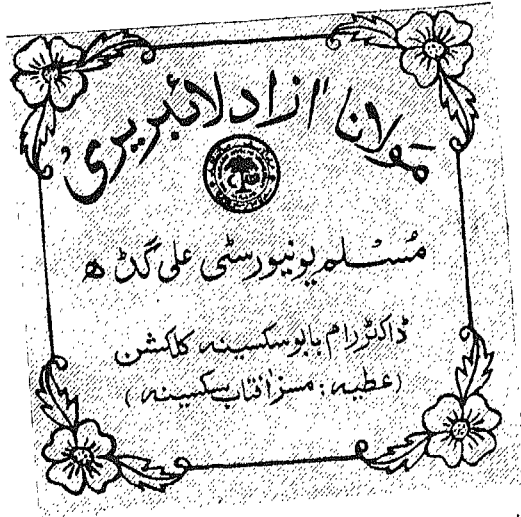 مولانا آزاد لائبریری
مُسلم یونیورسٹی علی گڑھ
ڈاکٹر رام بابو سکسینہ کلکشن
(عطیہ: مسز آفتاب سکسینہ)